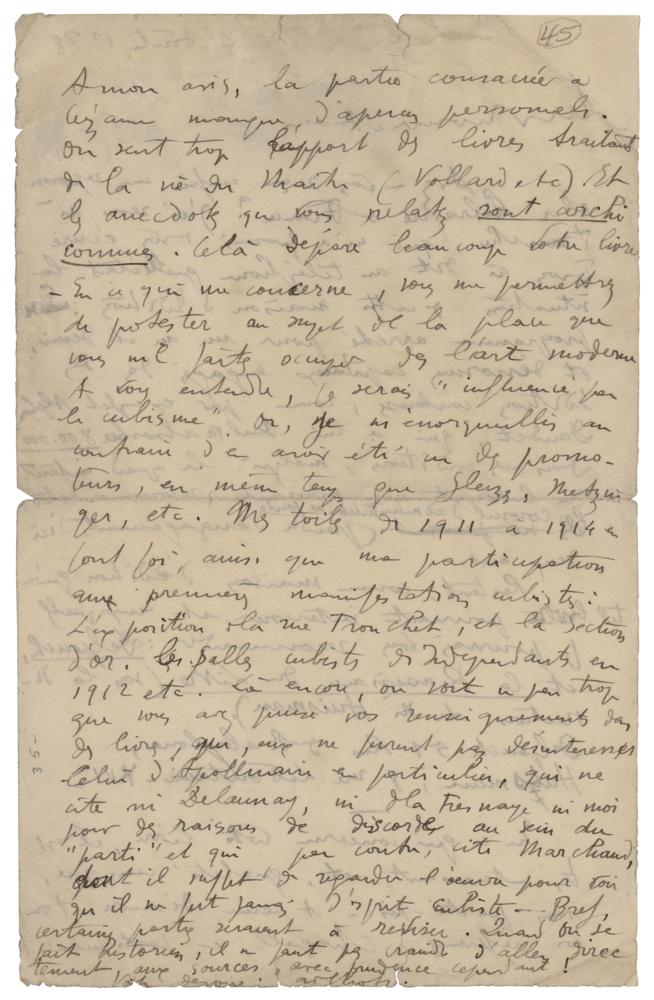 45
A mon avis, la partie consacrée a
Cézanne manque, d'aperçus personnels.
On sent trop l'apport des livres traitant
de la vie du Maître (Vollard, etc) Et
les anecdotes que vous relatez sont archi
connues. Celà dépare beaucoup votre livre.
– En ce qui me concerne, vous me permettrez
de protester au sujet de la place que
vous me faites occuper dans l'art moderne
A vous entendre, je serais "influencé par
le cubisme". Or, je m'enorgueillis au
contraire d'en avoir été un des promo-
teurs, en même temps que Gleizes, Metzin
ger, etc. Mes toiles de 1911 à 1914 en
font foi, ainsi que ma participation
aux premières manifestations cubistes:
L'exposition de la rue Tronchet, et la Section
d'or. Les salles cubistes des Indépendants en
1912 etc. Là encore, on voit un peu trop
que vous avez puisé vos renseignements dans
des livres, qui, eux ne furent pas désintéressés
Celui d'Apollinaire en particulier, qui ne
cite ni Delaunay, ni de la Fresnaye ni moi
pour des raisons de discordes au sein du
"parti" et qui par contre, cite Marchand,
dont il suffit de regarder l'oeuvre pour voir
qu'il ne fut jamais d'esprit cubiste – Bref,
certaines parties seraient à reviser. Quand on se
fait historien, il ne faut pas craindre d'aller, direc
tement, aux sources, avec prudence cependant!
35-